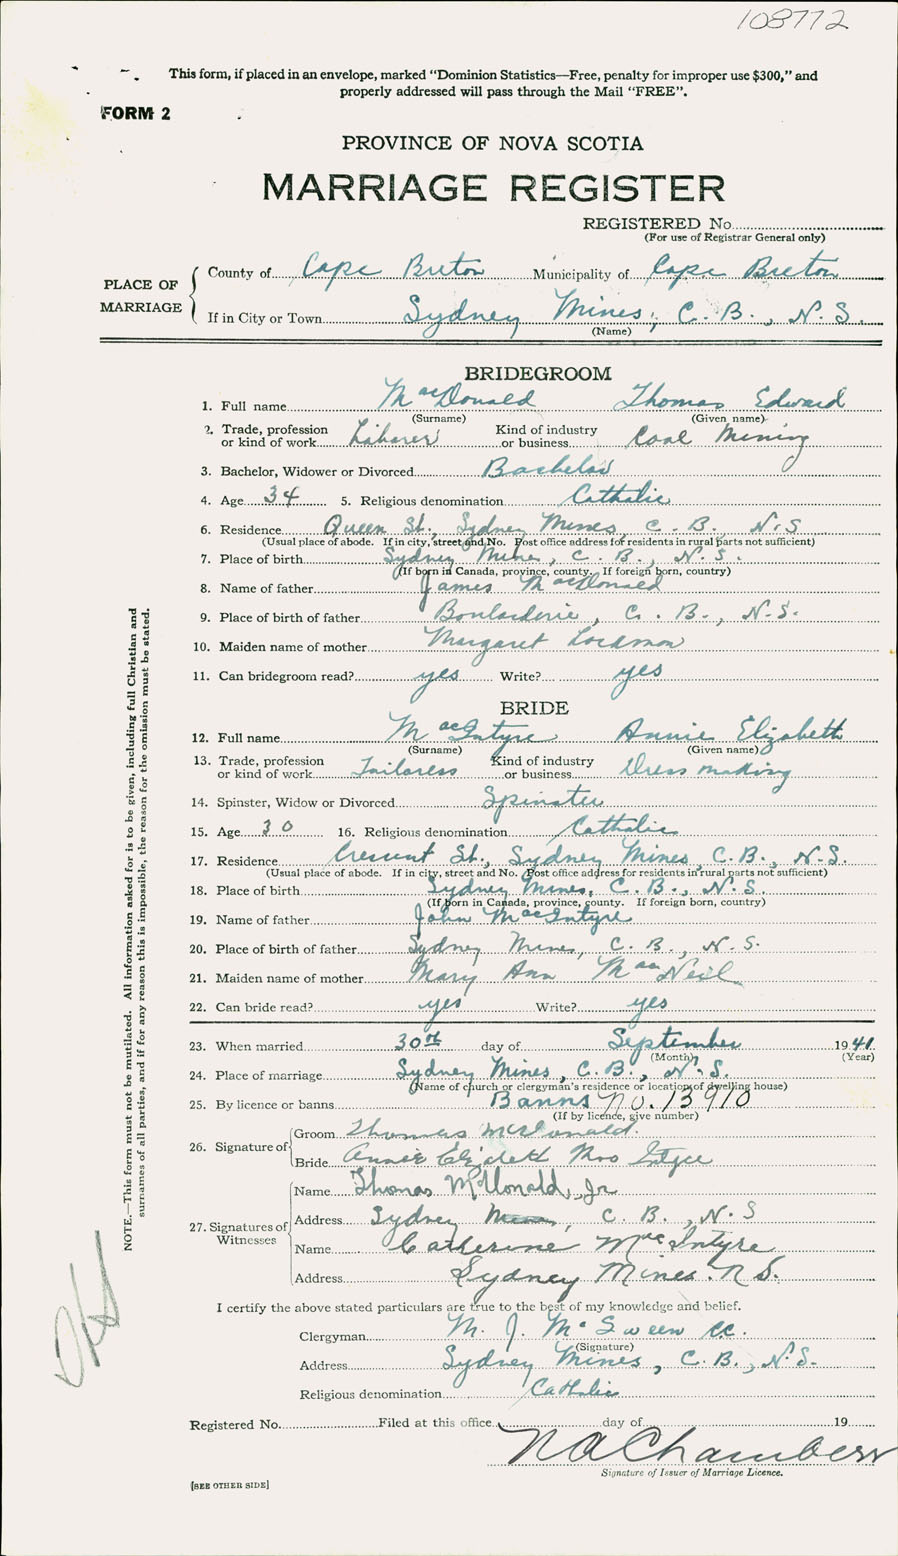 108772
This form, if placed in an envelope, marked “Dominion Statistics—Free, penalty for improper use $300,” and
properly addressed will pass through the Mail “FREE”.
FORM 2
PROVINCE OF NOVA SCOTIA
MARRIAGE REGISTER
REGISTERED No.
(For use of Registrar General only)
PLACE OF MARRIAGE
County of Cape Breton Municipality of Cape Breton
If in City or Town Sydney Mines, C. B., N. S.
(Name)
BRIDEGROOM
1. Full name MacDonald Thomas Edward
(Surname) (Given name)
2. Trade, profession or kind of work Laborer Kind of industry or business Coal Mining
3. Bachelor, Widower or Divorced Bachelor
4. Age 34 5. Religious denomination Catholic
6. Residence Queen St., Sydney Mines, C. B., N.S
(Usual place of abode. If in city, street and No. Post office address for residents in rural parts not sufficient)
7. Place of birth Sydney Mines, C. B., N. S.
(If born in Canada, province, county. If foreign born, country)
8. Name of father James MacDonald
9. Place of birth of father Boularderie, C. B., N.S.
10. Maiden name of mother Margaret
11. Can bridegroom read? yes Write? yes
BRIDE
12. Full name MacIntyre Annie Elizabeth
(Surname) (Given name)
13. Trade, profession or kind of work Tailoress Kind of industry or business Dress making
14. Spinster, Widow or Divorced Spinster
15. Age 30 16. Religious denomination Catholic
17. Residence Crescent St., Sydney Mines, C.B., N.S.
(Usual place of abode. If in city, street and No. Post office address for residents in rural parts not sufficient)
18. Place of birth Sydney Mines, C. B., N. S.
(If born in Canada, province, county. If foreign born, country)
19. Name of father John MacIntyre
20. Place of birth of father Sydney Mines, C. B., N. S.
21. Maiden name of mother Mary Ann MacNeil
22. Can bride read? yes Write? yes
23. When married 30th day of September 1941
(Month) (Year)
24. Place of marriage Sydney Mines, C. B., N. S.
(Name of church or clergyman's residence or location of dwelling house)
25. By licence or banns Banns No. 13910
(If by licence, give number)
26. Signature of
Groom Thomas McDonald.
Bride Annie Elizabeth
27. Signatures of Witnesses
Name Thomas McDonald, Jr
Address Sydney Mines, C. B., N. S
Name Catherine MacIntyre
Address Sydney Mines. N S.
I certify the above stated particulars are true to the best of my knowledge and belief.
Clergyman M. J. McSween cc.
(Signature)
Address Sydney Mines, C. B., N. S.
Religious denomination Catholic
Registered No. Filed at this office day of 19
N A Chambers
Signature of Issuer of Marriage Licence.
[SEE OTHER SIDE]
NOTE.—This form must not be mutilated. All information asked for is to be given, including full Christian and
surnames of all parties, and if for any reason this is impossible, the reason for the omission must be stated.